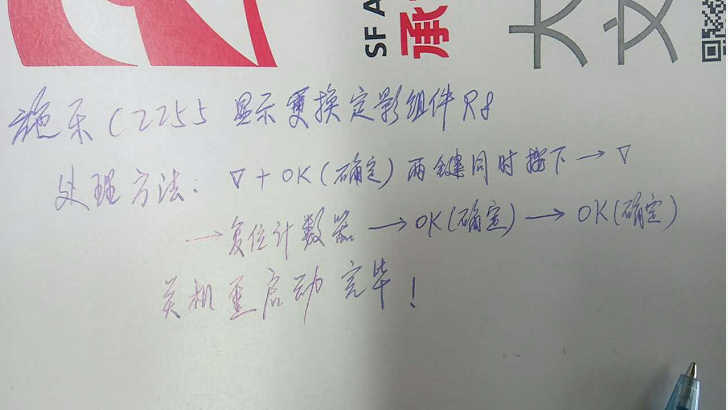 SF A
承
大
文
施乐C2255 显示更换定影组件R8
处理方法: ▽+OK(确定)两键同时按下→▽
→复位计数器→OK(确定)→OK(确定)
关机重启动 完毕!